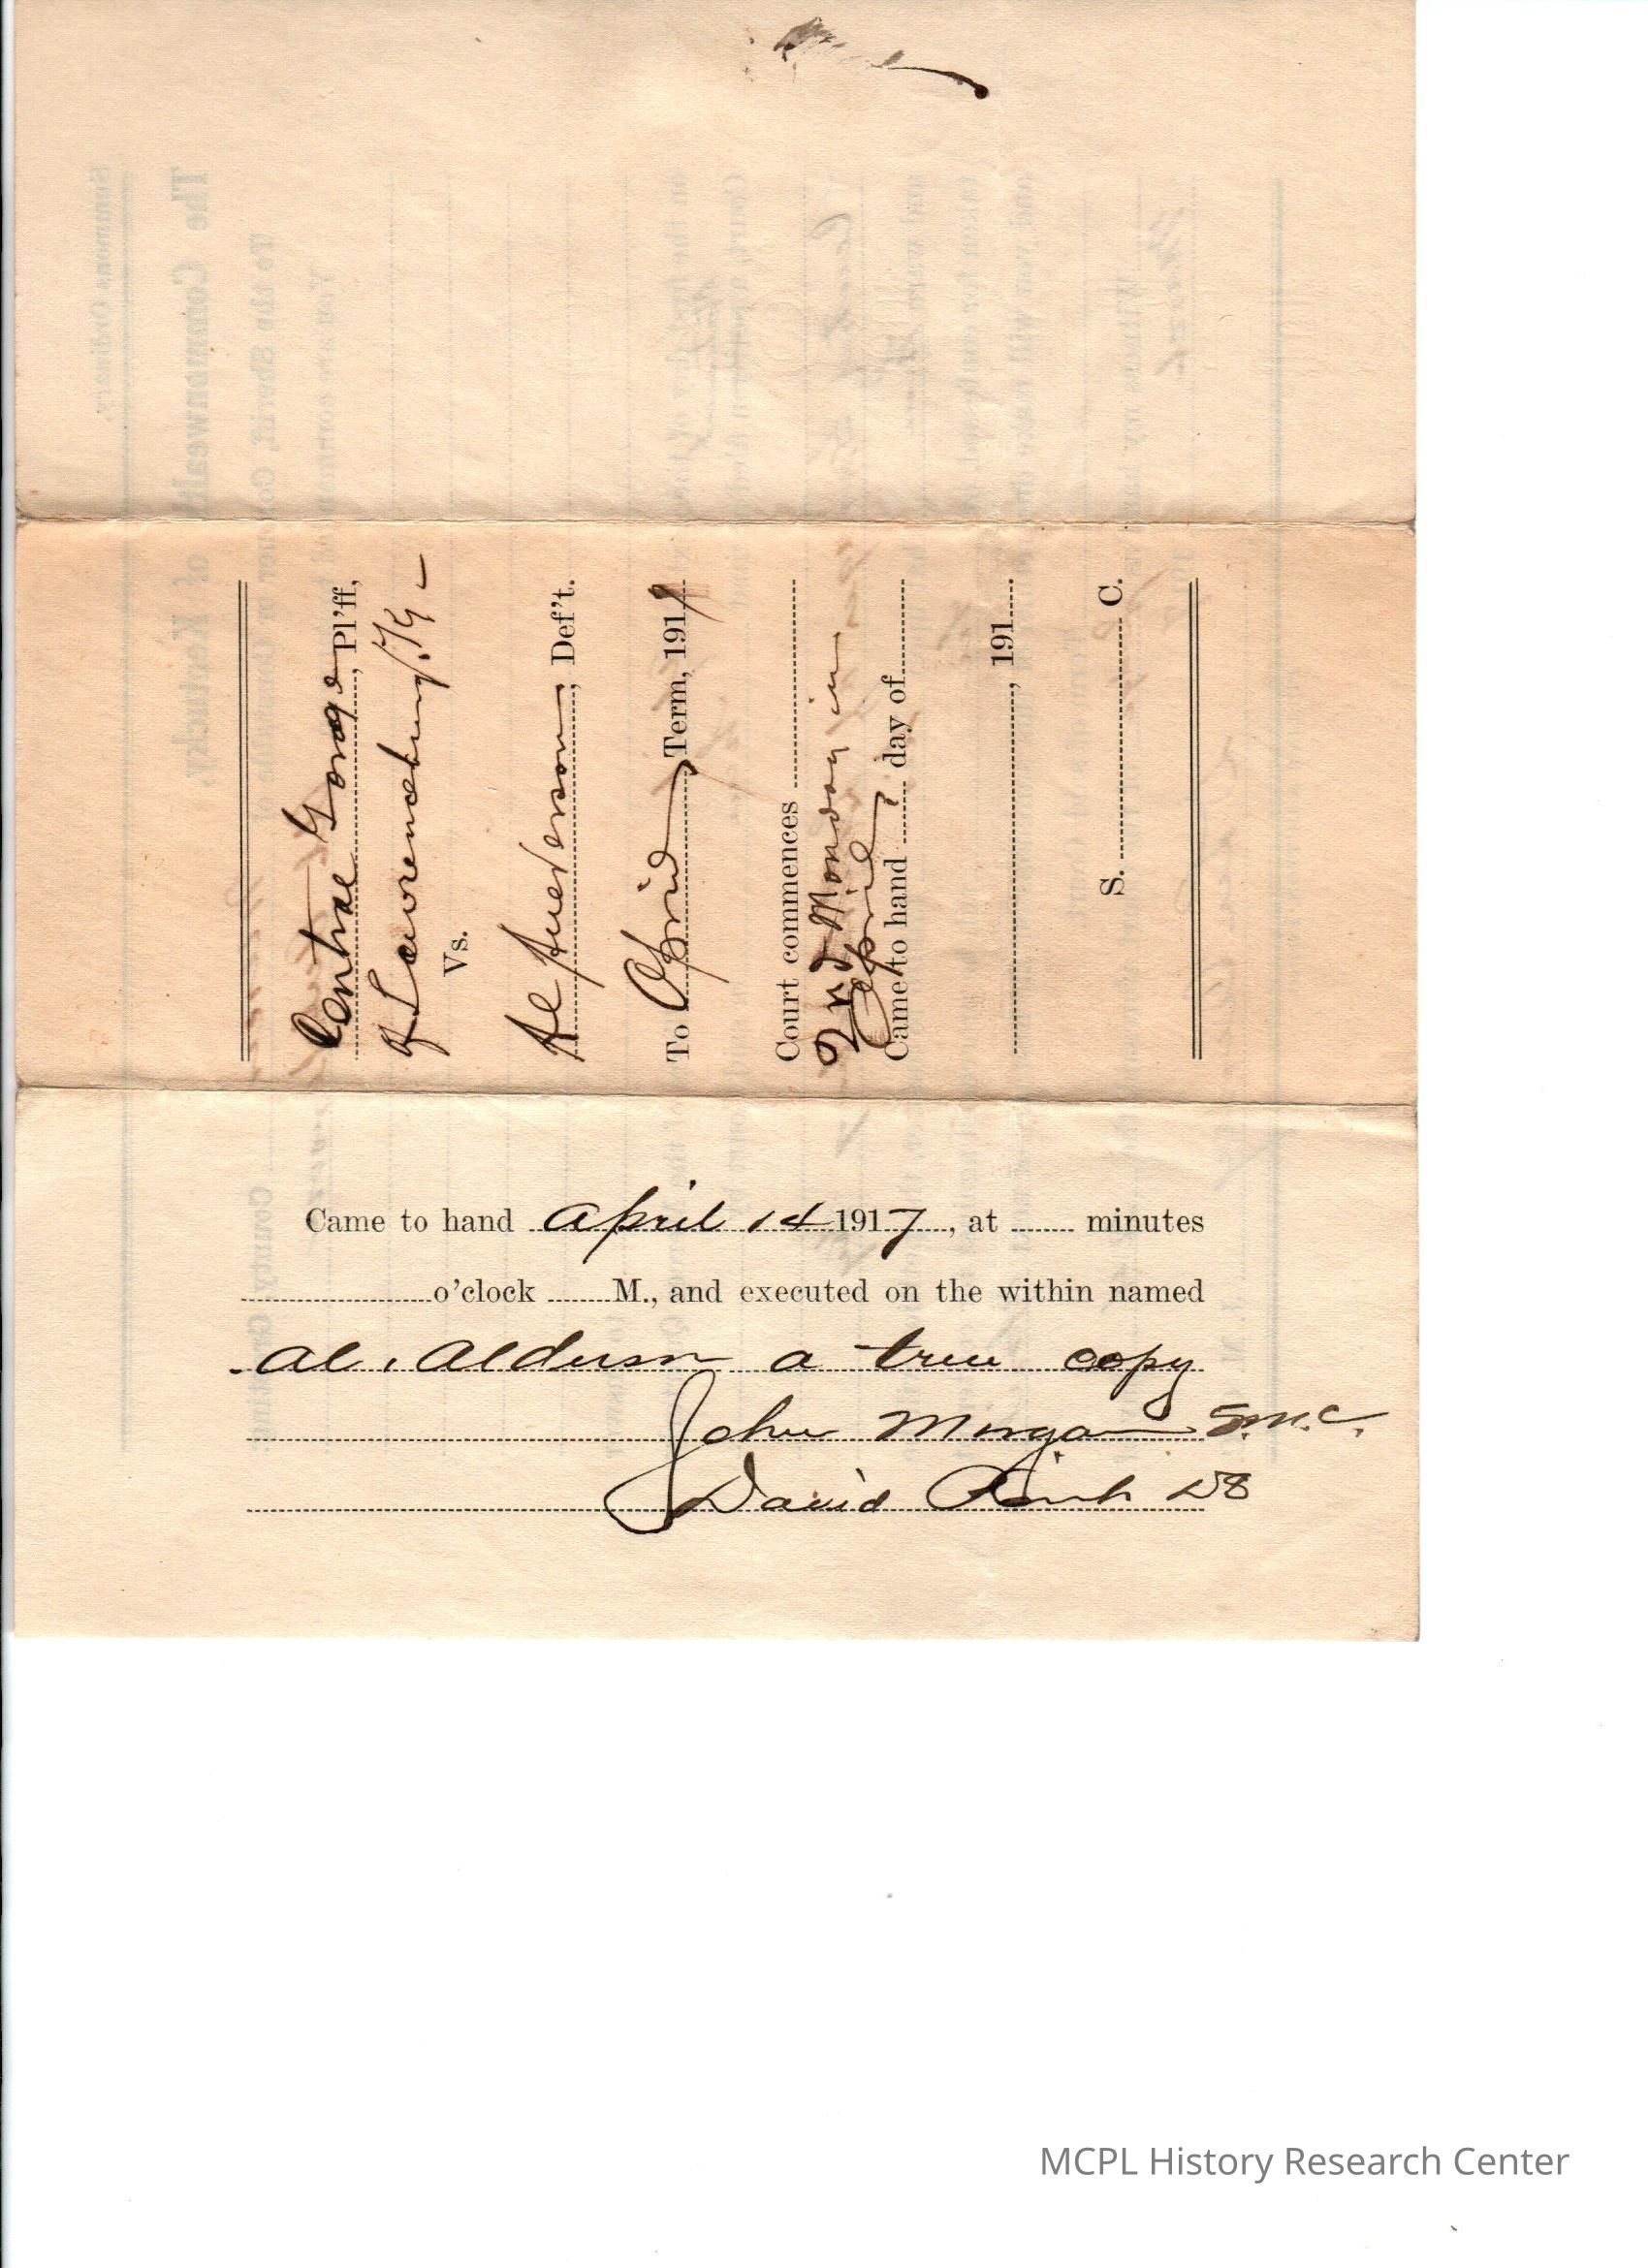 Central Garage, Pl'ff,
of Lawrenceburg, Ky -
Vs.
Al, Def't.
To April Term, 1917
Court commences
2nd Monday in
April
Came to hand day of
, 191
S. C.
Came to hand April 14 1917, at minutes
o'clock M., and executed on the within named
Al. Alderson a true copy
John Morgan S.M.C.
David DS
MCPL History Research Center